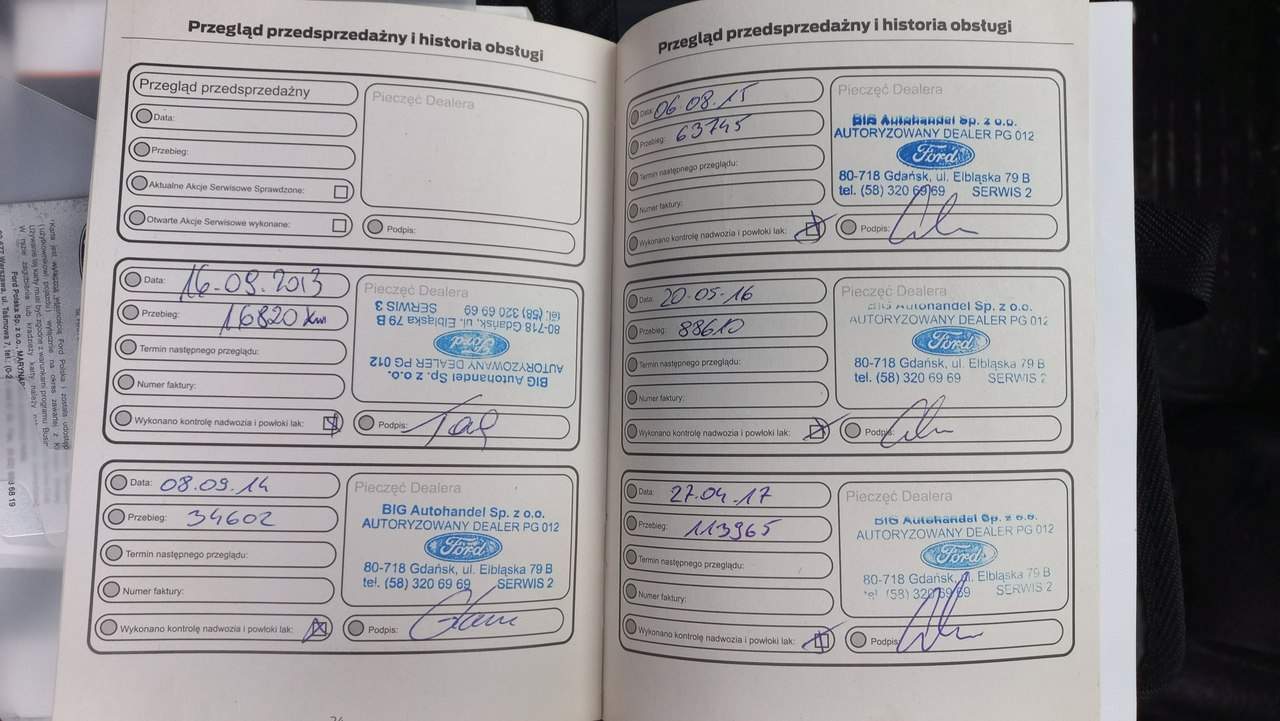 Przegląd przedsprzedażny i historia obsługi
Przegląd przedsprzedażny
Data:
Przebieg:
Aktualne Akcje Serwisowe Sprawdzone:
Otwarte Akcje Serwisowe wykonane:
Pieczęć Dealera
Podpis:
Data: 16.09.2013
Przebieg: 16820 km
Termin następnego przeglądu:
Numer faktury:
Wykonano kontrolę nadwozia i powłoki lak:
Pieczęć Dealera
BIG Autohandel Sp. z o.o.
AUTORYZOWANY DEALER PG 012
Ford
80-718 Gdańsk, ul. Elbląska 79 B
tel. (58) 320 69 69 SERWIS 3
Podpis:
Data: 08.09.14
Przebieg: 34602
Termin następnego przeglądu:
Numer faktury:
Wykonano kontrolę nadwozia i powłoki lak:
Pieczęć Dealera
BIG Autohandel Sp. z o.o.
AUTORYZOWANY DEALER PG 012
Ford
80-718 Gdańsk, ul. Elbląska 79 B
tel. (58) 320 69 69 SERWIS 2
Podpis:
Przegląd przedsprzedażny i historia obsługi
Data: 06.08.15
Przebieg: 63745
Termin następnego przeglądu:
Numer faktury:
Wykonano kontrolę nadwozia i powłoki lak:
Pieczęć Dealera
BIG Autohandel Sp. z o.o.
AUTORYZOWANY DEALER PG 012
Ford
80-718 Gdańsk, ul. Elbląska 79 B
tel. (58) 320 69 69 SERWIS 2
Podpis:
Data: 20.05.16
Przebieg: 88610
Termin następnego przeglądu:
Numer faktury:
Wykonano kontrolę nadwozia i powłoki lak:
Pieczęć Dealera
BIG Autohandel Sp. z o.o.
AUTORYZOWANY DEALER PG 012
Ford
80-718 Gdańsk, ul. Elbląska 79 B
tel. (58) 320 69 69 SERWIS 2
Podpis:
Data: 27.04.17
Przebieg: 113965
Termin następnego przeglądu:
Numer faktury:
Wykonano kontrolę nadwozia i powłoki lak:
Pieczęć Dealera
BIG Autohandel Sp. z o.o.
AUTORYZOWANY DEALER PG 012
Ford
80-718 Gdańsk, ul. Elbląska 79 B
tel. (58) 320 69 69 SERWIS 2
Podpis: